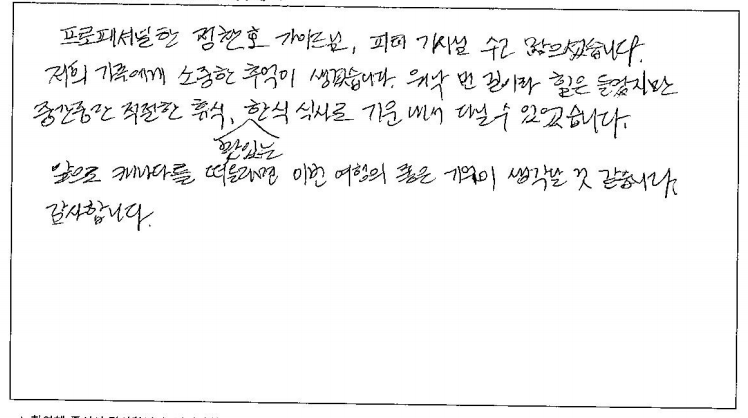 프로페셔널한 정찬호 가이드님, 피터 기사님 수고 많으셨습니다.
저희 가족에게 소중한 추억이 생겼습니다. 워낙 먼 길이라 힘은 들었지만
중간중간 적절한 휴식, 맛있는 한식 식사로 기운 내서 다닐 수 있었습니다.
앞으로 캐나다를 떠올리면 이번 여행의 좋은 기억이 생각날 것 같습니다.
감사합니다.